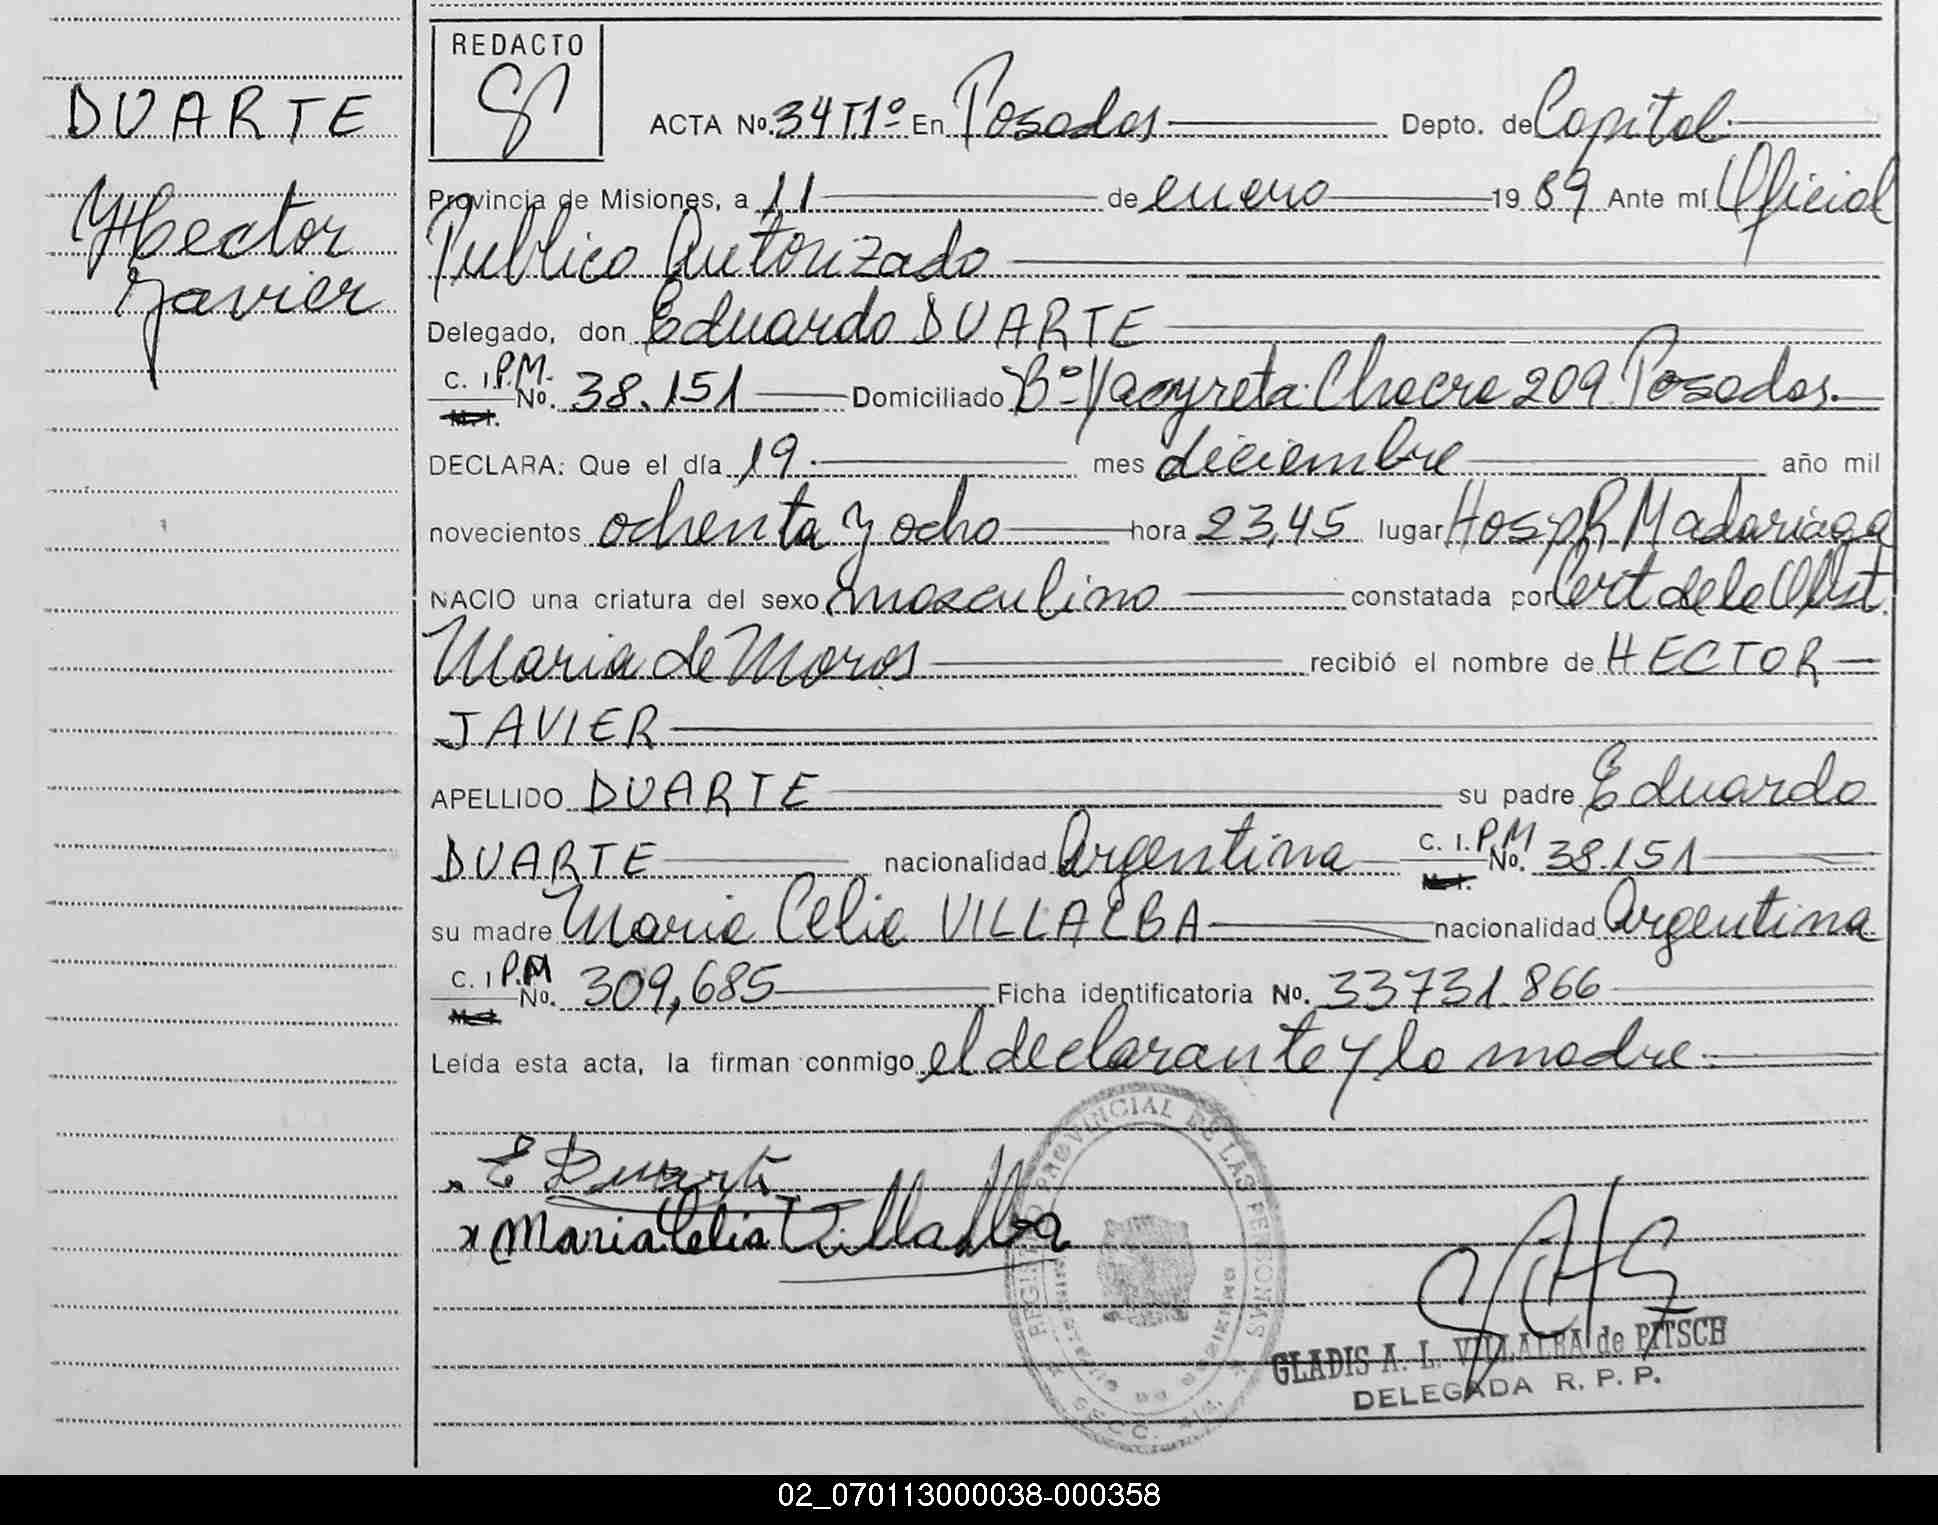 DUARTE
Hector
Javier
REDACTO
ACTA Nº. 34 T1º En Posadas Depto. de Capital
Provincia de Misiones, a 11 de enero 19 89 Ante mí Oficial
Publico Autorizado
Delegado, don Eduardo DUARTE
C. I. P.M. No. 38.151 Domiciliado Bº Yacyreta Chacra 209 Posadas.
DECLARA: Que el día 19 mes diciembre año mil
novecientos ochenta y ocho hora 23,45 lugar Hosp R Madariaga
NACIO una criatura del sexo masculino constatada por Cert de la Obst.
Maria de Moros recibió el nombre de HECTOR
JAVIER
APELLIDO DUARTE su padre Eduardo
DUARTE nacionalidad Argentina C. I. P.M No. 38.151
su madre Maria Celia VILLALBA nacionalidad Argentina
C. I P.M No. 309,685 Ficha identificatoria No. 33731.866
Leída esta acta, la firman conmigo el declarante y la madre.
x E Duarte
x Maria Celia Villalba
REGISTRO PROVINCIAL DE LAS PERSONAS
SECC.
GLADIS A. L. VILLALBA de PITSCH
DELEGADA R. P. P.
02_070113000038-000358